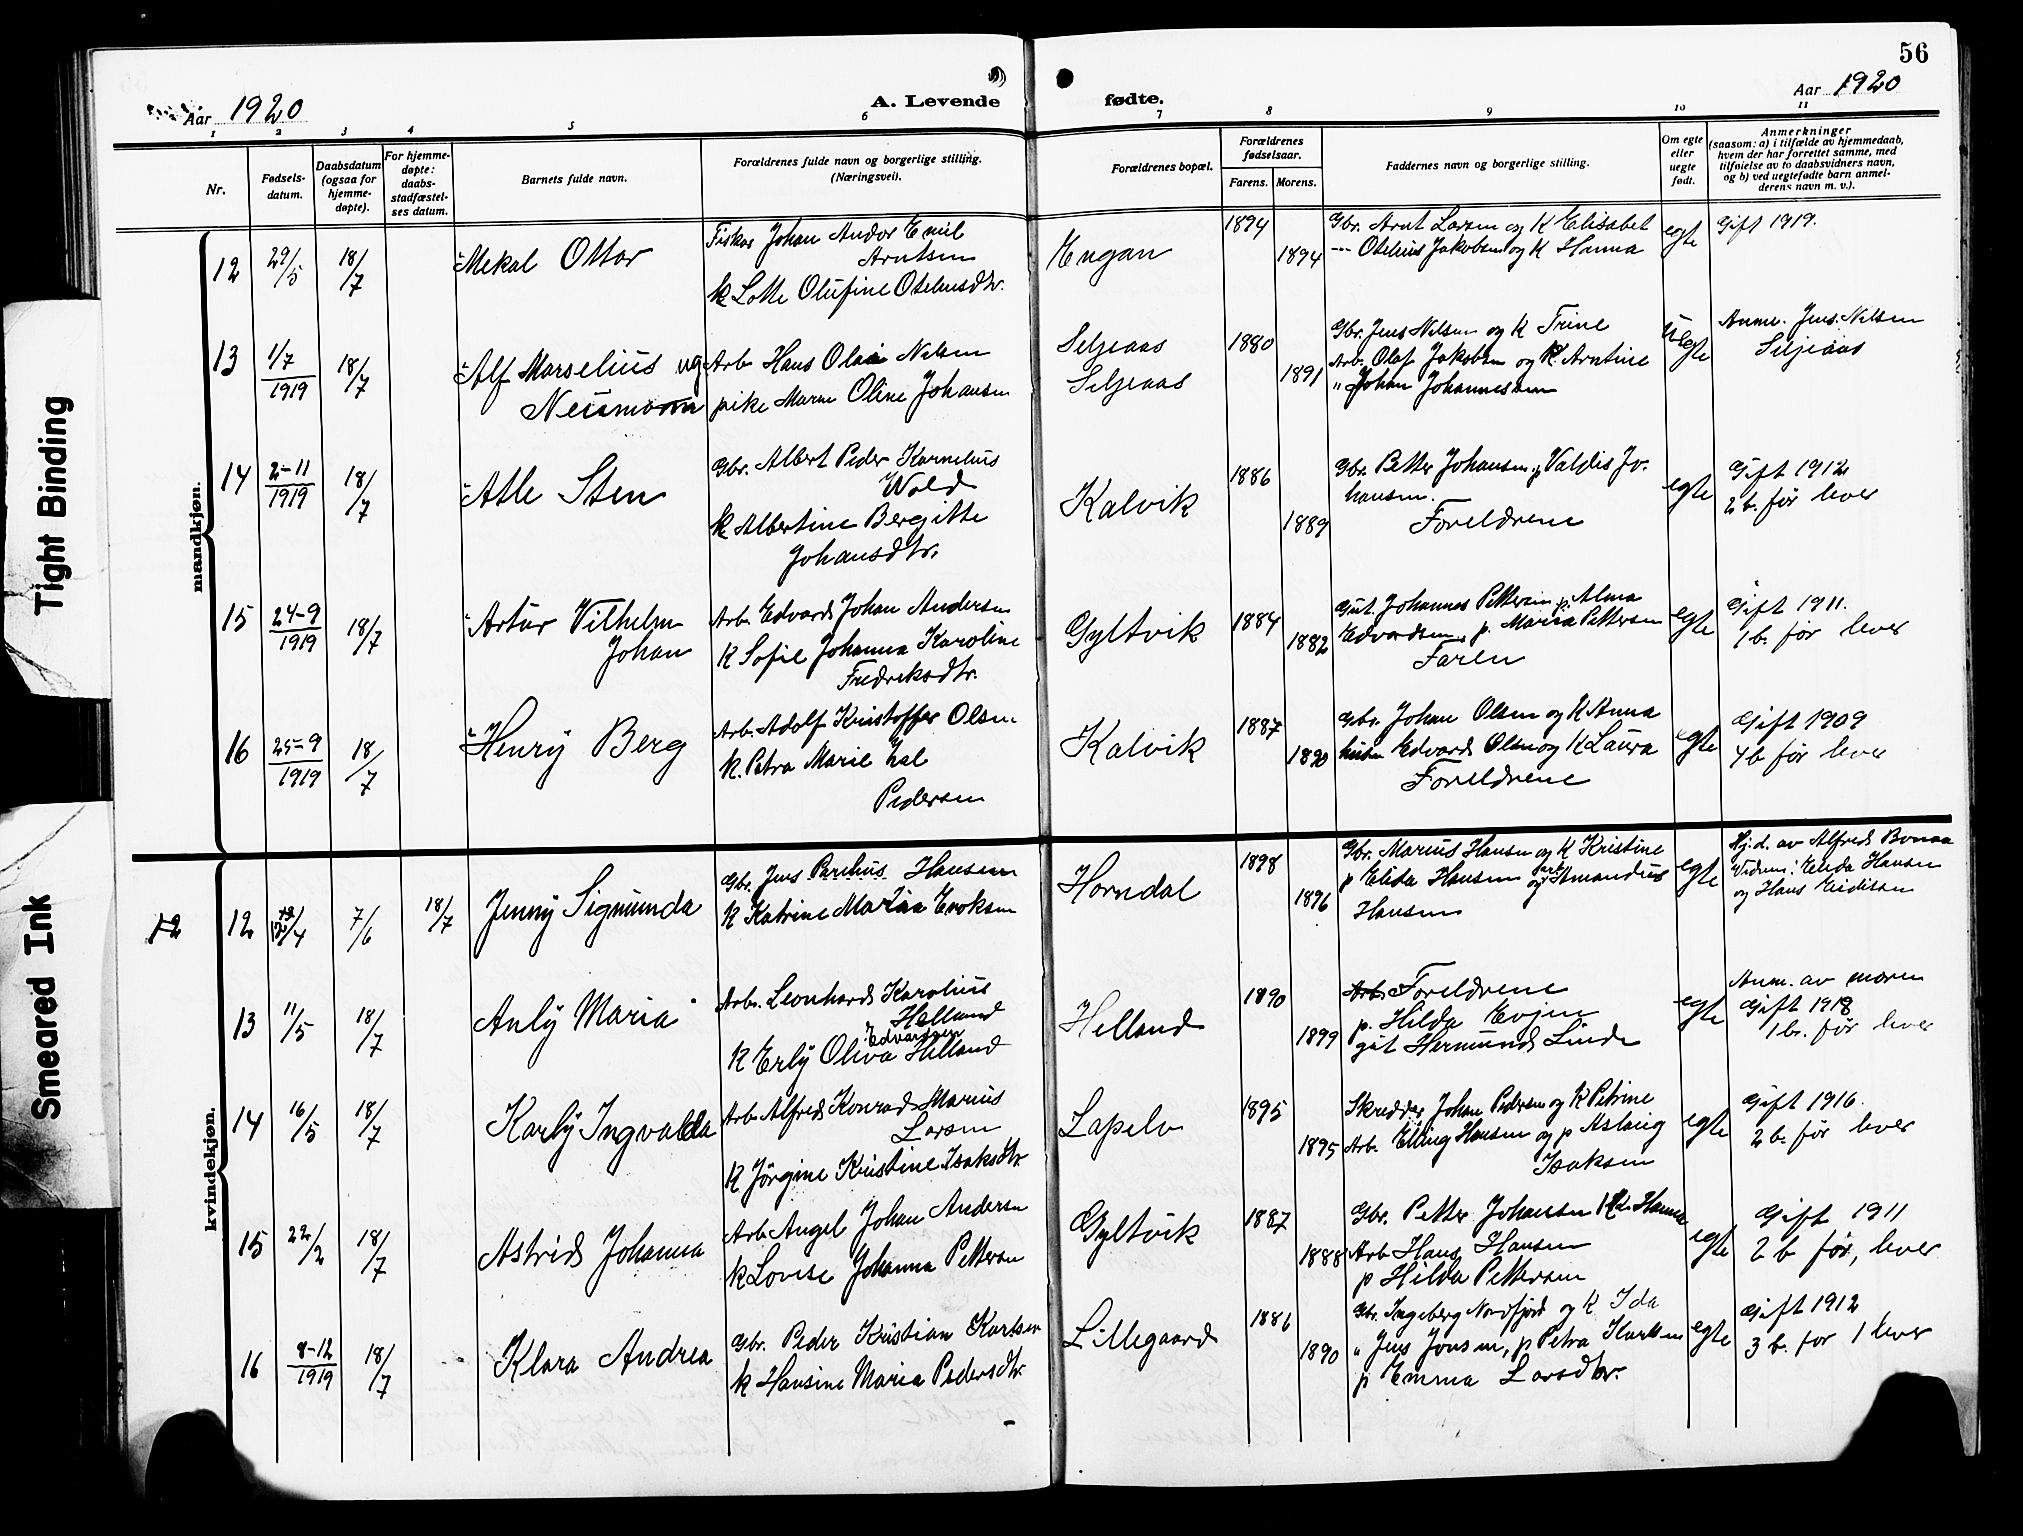 56
Aar 1920
A. Levende
fødte.
Aar 1920
1 2 3 4 5 6 7 8 9 10 11
Nr.
Fødsels-
datum.
Daabsdatum
(ogsaa for
hjemme-
døpte).
For hjemme-
døpte:
daabs-
stadfæstel-
ses datum.
Barnets fulde navn.
Forældrenes fulde navn og borgerlige stilling.
(Næringsvei).
Forældrenes bopæl.
Forældrenes
fødselsaar.
Farens. Morens.
Faddernes navn og borgerlige stilling.
Om egte
eller
uegte
født.
Anmerkninger
(saasom: a) i tilfælde av hjemmedaab,
hvem der har forrettet samme, med
tilføielse av to daabsvidners navn,
og b) ved uegtefødte barn anmel-
derens navn m. v.).
mandkjøn.
12
29/5
18/7
Mekal Ottar
Fisker Johan Andor Emil
Arntsen
k Lotte Olufine Oteliusdtr.
Engan
1894
1894
Gbr. Arnt Larsen og K Elisabet
--- Otelius Jakobsen og K Hanna
egte
Gift 1919.
13
1/7
1919
18/7
Alf Marselius
Neumann
Arb Hans Olai Nilsen
pike Maren Oline Johansen
Seljeaas
Seljeaas
1880
1891
Gbr. Jens Nilsen og K Trine
Arb. Olaf Jakobsen og K. Arntine
" Johan Johannesen
uegte
Anm. Jens Nilsen
Seljeaas
14
2-11
1919
18/7
Atle Sten
Gbr. Albert Peder Kornelius
Wold
k Albertine Bergitte
Johansdtr.
Kalvik
1886
1889
Gbr. Petter Johansen, p Valdis Jo-
hansen.
Foreldrene
egte
Gift 1912
2 b. før lever
15
24-9
1919
18/7
Artur Vilhelm
Johan
Arb. Edvard Johan Andersen
K Sofie Johanna Karoline
Fredriksdtr.
Gyltvik
1884
1882
Gut Johannes Pettersen, p. Alma
Edvardsen, p. Maria Pettersen
Faren
egte
Gift 1911.
1 b. før lever
16
25-9
1919
18/7
Henry Berg
Arb. Adolf Kristoffer Olsen
k. Petra Marie
Pedersen
Kalvik
1887
1890
Gbr. Johan Olsen og K Anna
Edvard Olsen og K Laura
Foreldrene
egte
Gift 1909
4 b før lever
kvindekjøn.
12
12
/4
7/6
18/7
Jenny Sigmunda
Gbr. Jens Parelius Hansen
K Katrine Maria Evoksen
Horndal
1898
1896
Gbr. Marius Hansen og K Kristine
p Elida Hansen og Amandius
Hansen
egte
Hj.d. av Alfred Bonaa
Vidner: Elida Hansen
og Hans Eidissen
13
11/5
18/7
Anly Maria
Arb. Leonhard Karolius
Helland
Edvardsen
k Erly Oliva Helland
Helland
1890
1899
Foreldrene
p. Hilda Evjen
gut Hermund Lind
egte
Anm. av moren
Gift 1918
1 b. før lever
14
16/5
18/7
Karly Ingvalda
Arb Alfred Konrad Marius
Larsen
K Jørgine Kristine Isaksdtr
Lapelv
1895
1895
Skredder Johan Pedersen og K Petrine
Arb. Elling Hansen og p Aslaug
Isaksen
egte
Gift 1916.
2 b. før lever
15
22/2
18/7
Astrid Johanna
Arb Angel Johan Andersen
k Lovise Johanna Pettersen
Gyltvik
1887
1888
Gbr. Petter Johansen Hanna
Arb Hans Hansen
p Hilda Pettersen
egte
Gift 1911
2 b før, lever
16
8-12
1919
18/7
Klara Andrea
Gbr. Peder Kristian Karlsen
k Hansine Maria Pedersdtr.
Lillegaard
1886
1890
Gbr. Ingeberg Nordfjord og K Ida
" Jens Jensen, p Petra Karlsen
p Emma Larsdtr.
egte
Gift 1912
3 b. før 1 lever
Tight Binding
Smeared Ink